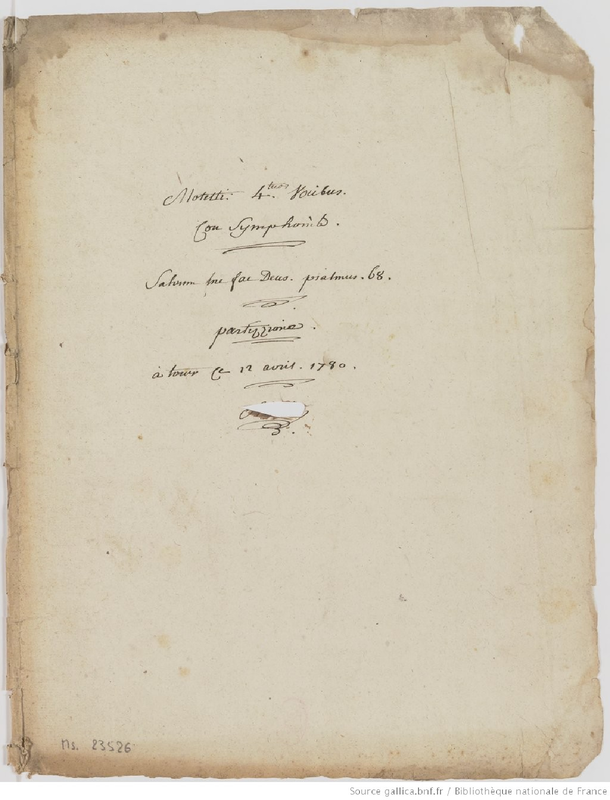 Motetti. 4.tuor Vocibus.
Con Symphoniis.
Salvum me fac Deus. psalmus. 68.
partizzione.
à tours Ce 12 avril. 1780.
Ms. 23526
Source gallica.bnf.fr / Bibliothèque nationale de France